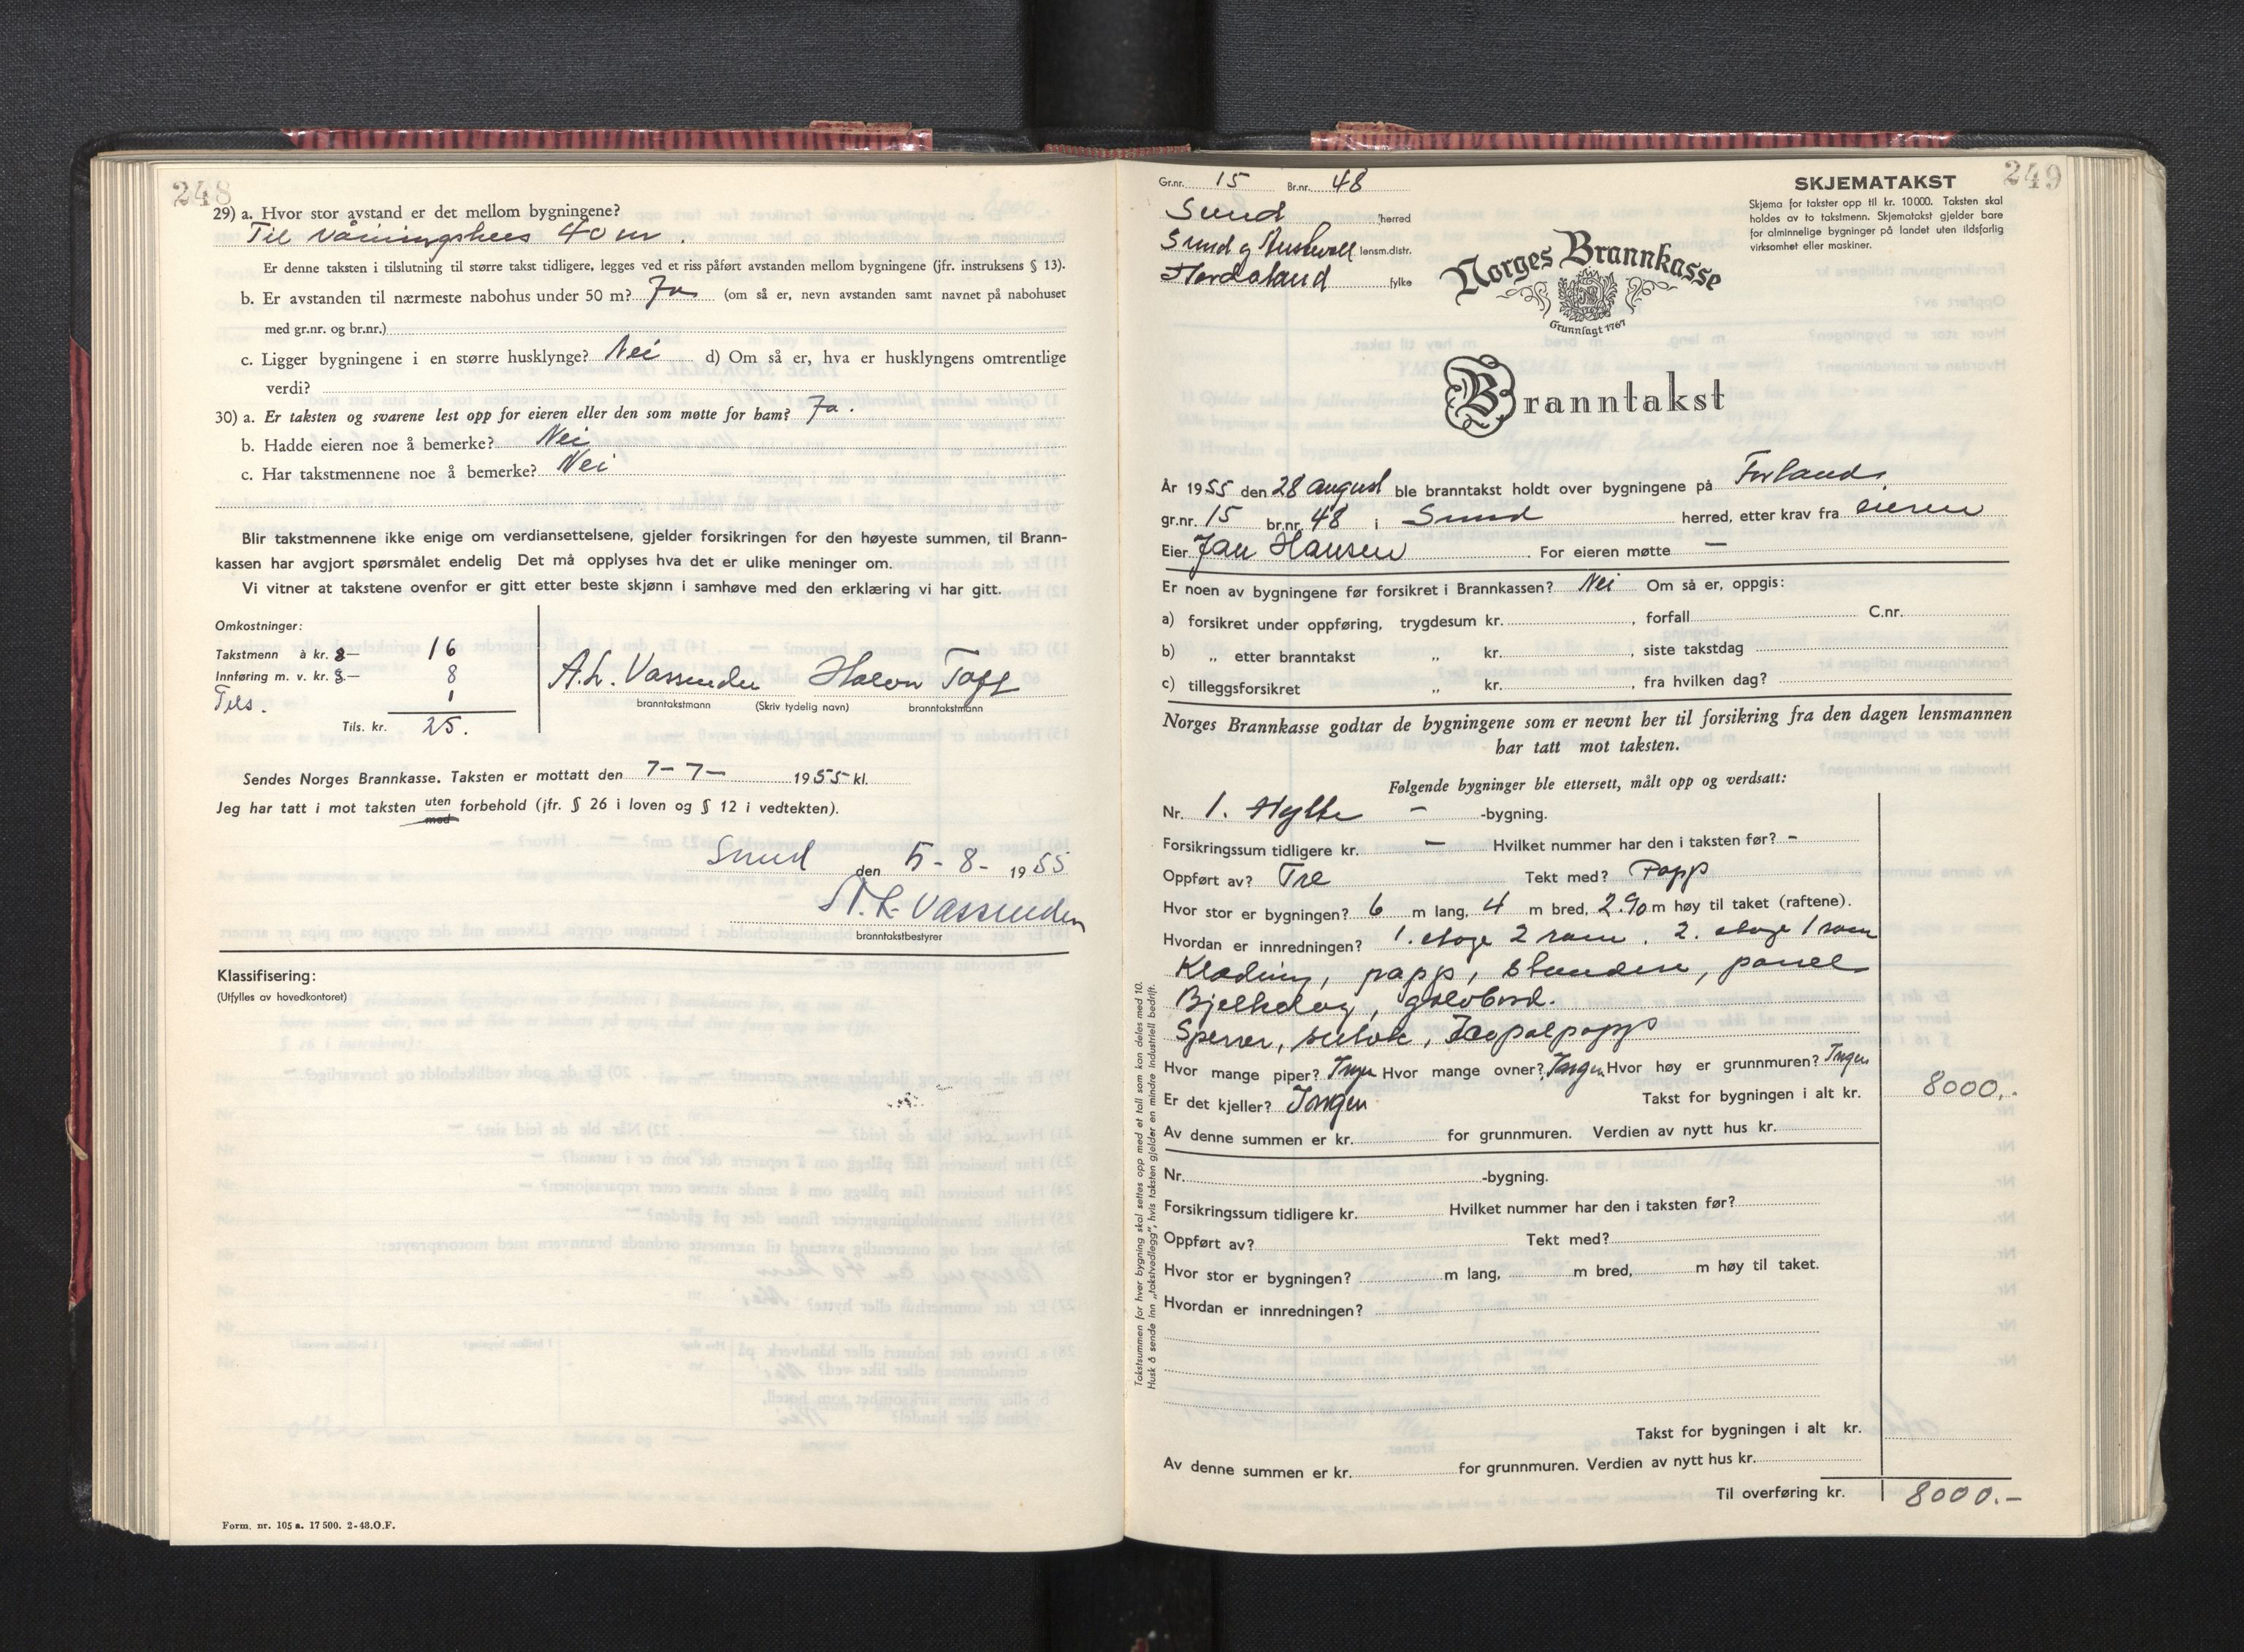 248
29) a. Hvor stor avstand er det mellom bygningene?
Til våningshus 40 m.
Er denne taksten i tilslutning til større takst tidligere, legges ved et riss påført avstanden mellom bygningene (jfr. instruksens § 13).
b. Er avstanden til nærmeste nabohus under 50 m? Ja (om så er, nevn avstanden samt navnet på nabohuset
med gr.nr. og br.nr.)
c. Ligger bygningene i en større husklynge? Nei d) Om så er, hva er husklyngens omtrentlige
verdi?
30) a. Er taksten og svarene lest opp for eieren eller den som møtte for ham? Ja.
b. Hadde eieren noe å bemerke? Nei
c. Har takstmennene noe å bemerke? Nei
Blir takstmennene ikke enige om verdiansettelsene, gjelder forsikringen for den høyeste summen, til Brann-
kassen har avgjort spørsmålet endelig Det må opplyses hva det er ulike meninger om.
Vi vitner at takstene ovenfor er gitt etter beste skjønn i samhøve med den erklæring vi har gitt.
Omkostninger:
Takstmenn à kr. 8— 16
Innføring m. v. kr. 8.— 8
Tils. 1
Tils. kr. 25.
A. L. Vassenden Halvor Toft
branntakstmann (Skriv tydelig navn) branntakstmann
Sendes Norges Brannkasse. Taksten er mottatt den 7-7- 1955 kl.
Jeg har tatt i mot taksten uten forbehold (jfr. § 26 i loven og § 12 i vedtekten).
med
Sund den 5-8-1955
A. L. Vassenden
branntakstbestyrer
Klassifisering:
(Utfylles av hovedkontoret)
Form. nr. 105 a. 17 500. 2-48. O.F.
249
Gr.nr. 15 Br.nr. 48
Sund herred
Sund og Austevoll lensm.distr.
Hordaland fylke
SKJEMATAKST
Skjema for takster opp til kr. 10 000. Taksten skal
holdes av to takstmenn. Skjematakst gjelder bare
for alminnelige bygninger på landet uten ildsfarlig
virksomhet eller maskiner.
Norges Brannkasse
Grunnlagt 1767
Branntakst
År 1955 den 28 august ble branntakst holdt over bygningene på Forland,
gr.nr. 15 br.nr. 48 i Sund herred, etter krav fra eieren
Eier Jan Hansen. For eieren møtte —
Er noen av bygningene før forsikret i Brannkassen? Nei Om så er, oppgis:
a) forsikret under oppføring, trygdesum kr. , forfall C.nr.
b) „ etter branntakst „ kr. , siste takstdag
c) tilleggsforsikret „ kr. , fra hvilken dag?
Norges Brannkasse godtar de bygningene som er nevnt her til forsikring fra den dagen lensmannen
har tatt mot taksten.
Følgende bygninger ble ettersett, målt opp og verdsatt:
Nr. 1. Hytte — -bygning.
Forsikringssum tidligere kr. — Hvilket nummer har den i taksten før? -
Oppført av? Tre Tekt med? Papp
Hvor stor er bygningen? 6 m lang, 4 m bred, 2.90 m høy til taket (raftene).
Hvordan er innredningen? 1. etage 2 rom. 2. etage 1 rom
Kledning, papp, stendere, panel
Bjelkelag, golvbord.
Sperrer, sutak, Icopalpapp
Hvor mange piper? Ingen Hvor mange ovner? Ingen Hvor høy er grunnmuren? Ingen
Er det kjeller? Ingen Takst for bygningen i alt kr. 8000,-
Av denne summen er kr. for grunnmuren. Verdien av nytt hus kr.
Nr. -bygning.
Forsikringssum tidligere kr. Hvilket nummer har den i taksten før?
Oppført av? Tekt med?
Hvor stor er bygningen? m lang, m bred, m høy til taket.
Hvordan er innredningen?
Takst for bygningen i alt kr.
Av denne summen er kr. for grunnmuren. Verdien av nytt hus kr.
Til overføring kr. 8000.-
Takstsummen for hver bygning skal settes opp med et tall som kan deles med 10.
Husk å sende inn „takstvedlegg", hvis taksten gjelder en mindre industriell bedrift.